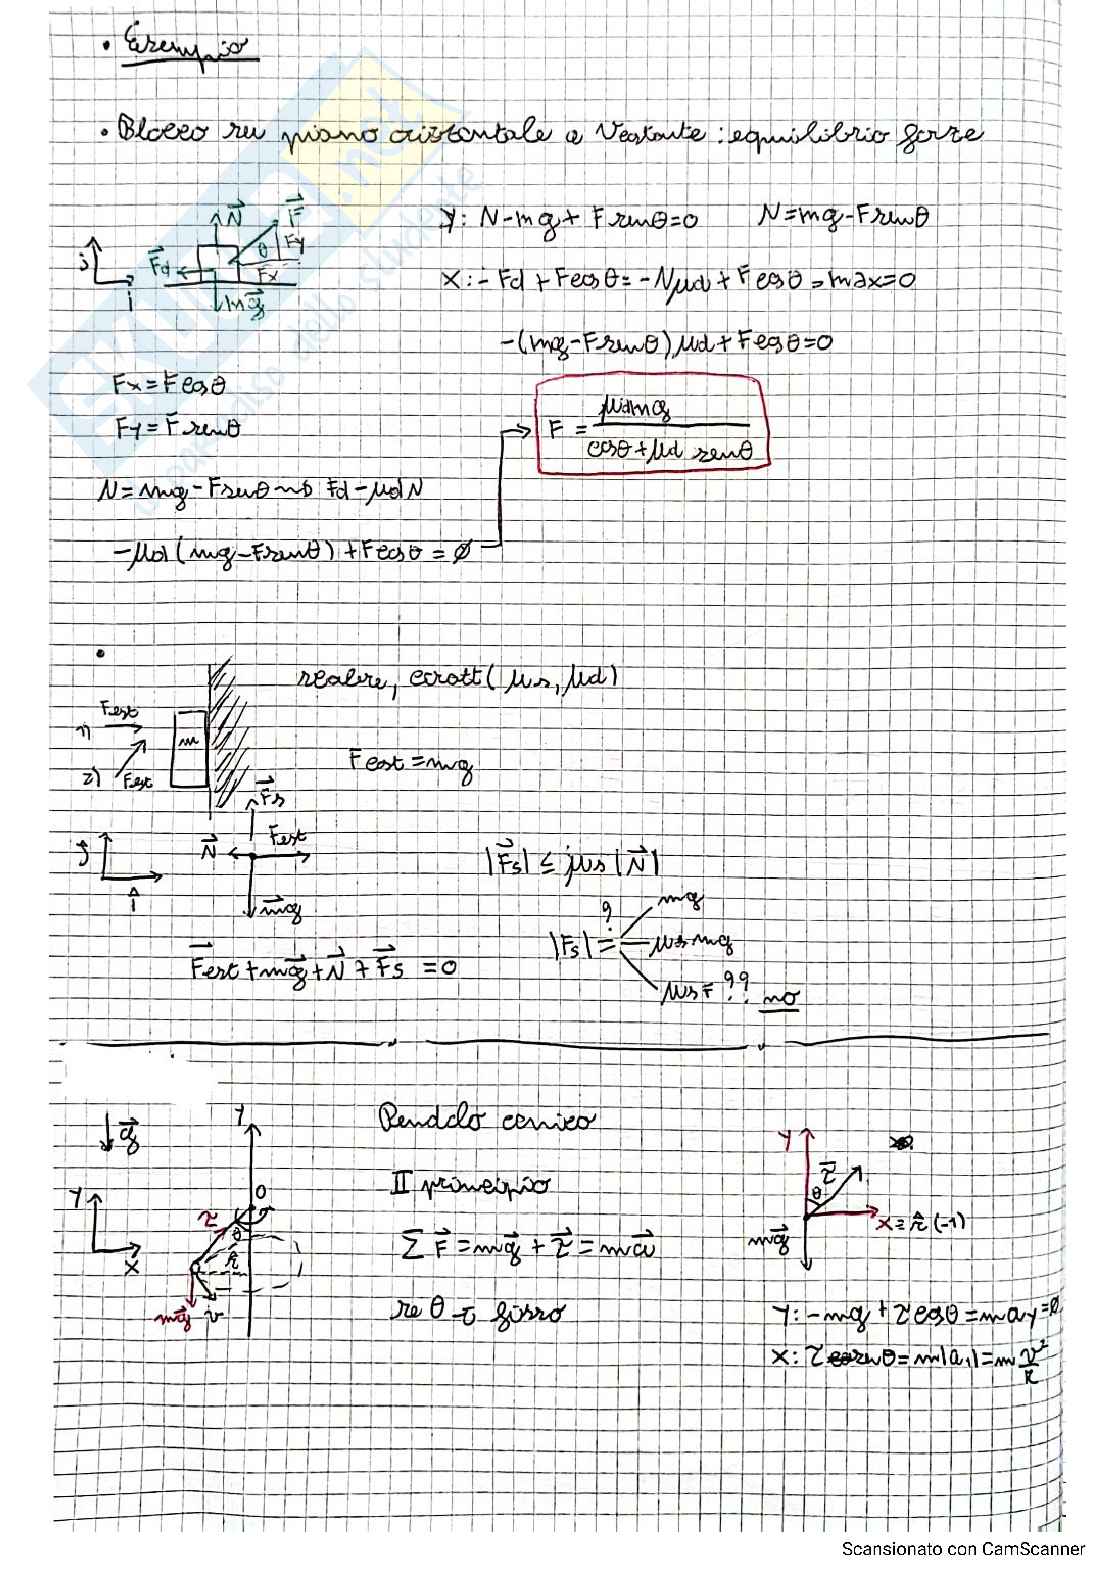 • Esempio
• Blocco su piano orizzontale e costante: equilibrio forze
N F
Fd θ Fy
Fx
j
i
mg
y: N-mg+Fsenθ=0 N=mg-Fsenθ
x: -Fd+Fcosθ=-Nμd+Fcosθ=max=0
-(mg-Fsenθ)μd+Fcosθ=0
Fx=Fcosθ
Fy=Fsenθ
F = μdmg / cosθ+μd senθ
N=mg-Fsenθ → Fd-μdN
-μd(mg-Fsenθ)+Fcosθ=∅
•
scabre, coratt(μs, μd)
1) Fest
m
2) Fest
Fest=mg
Fs
N Fest
j
i
mg
|Fs| ≤ μs|N|
?
|Fs| =
mg
μsmg
μsF ?? no
Fest+mg+N+Fs=0
Pendolo conico
g
y
x
y
O
τ
θ
r
mg v
II principio
ΣF=mg+τ=ma
se θ è fisso
y
τ
θ
x≡r̂(-1)
mg
y: -mg+τcosθ=may=∅
x: τsenθ=m|a⊥|=m v²/r
Scansionato con CamScanner